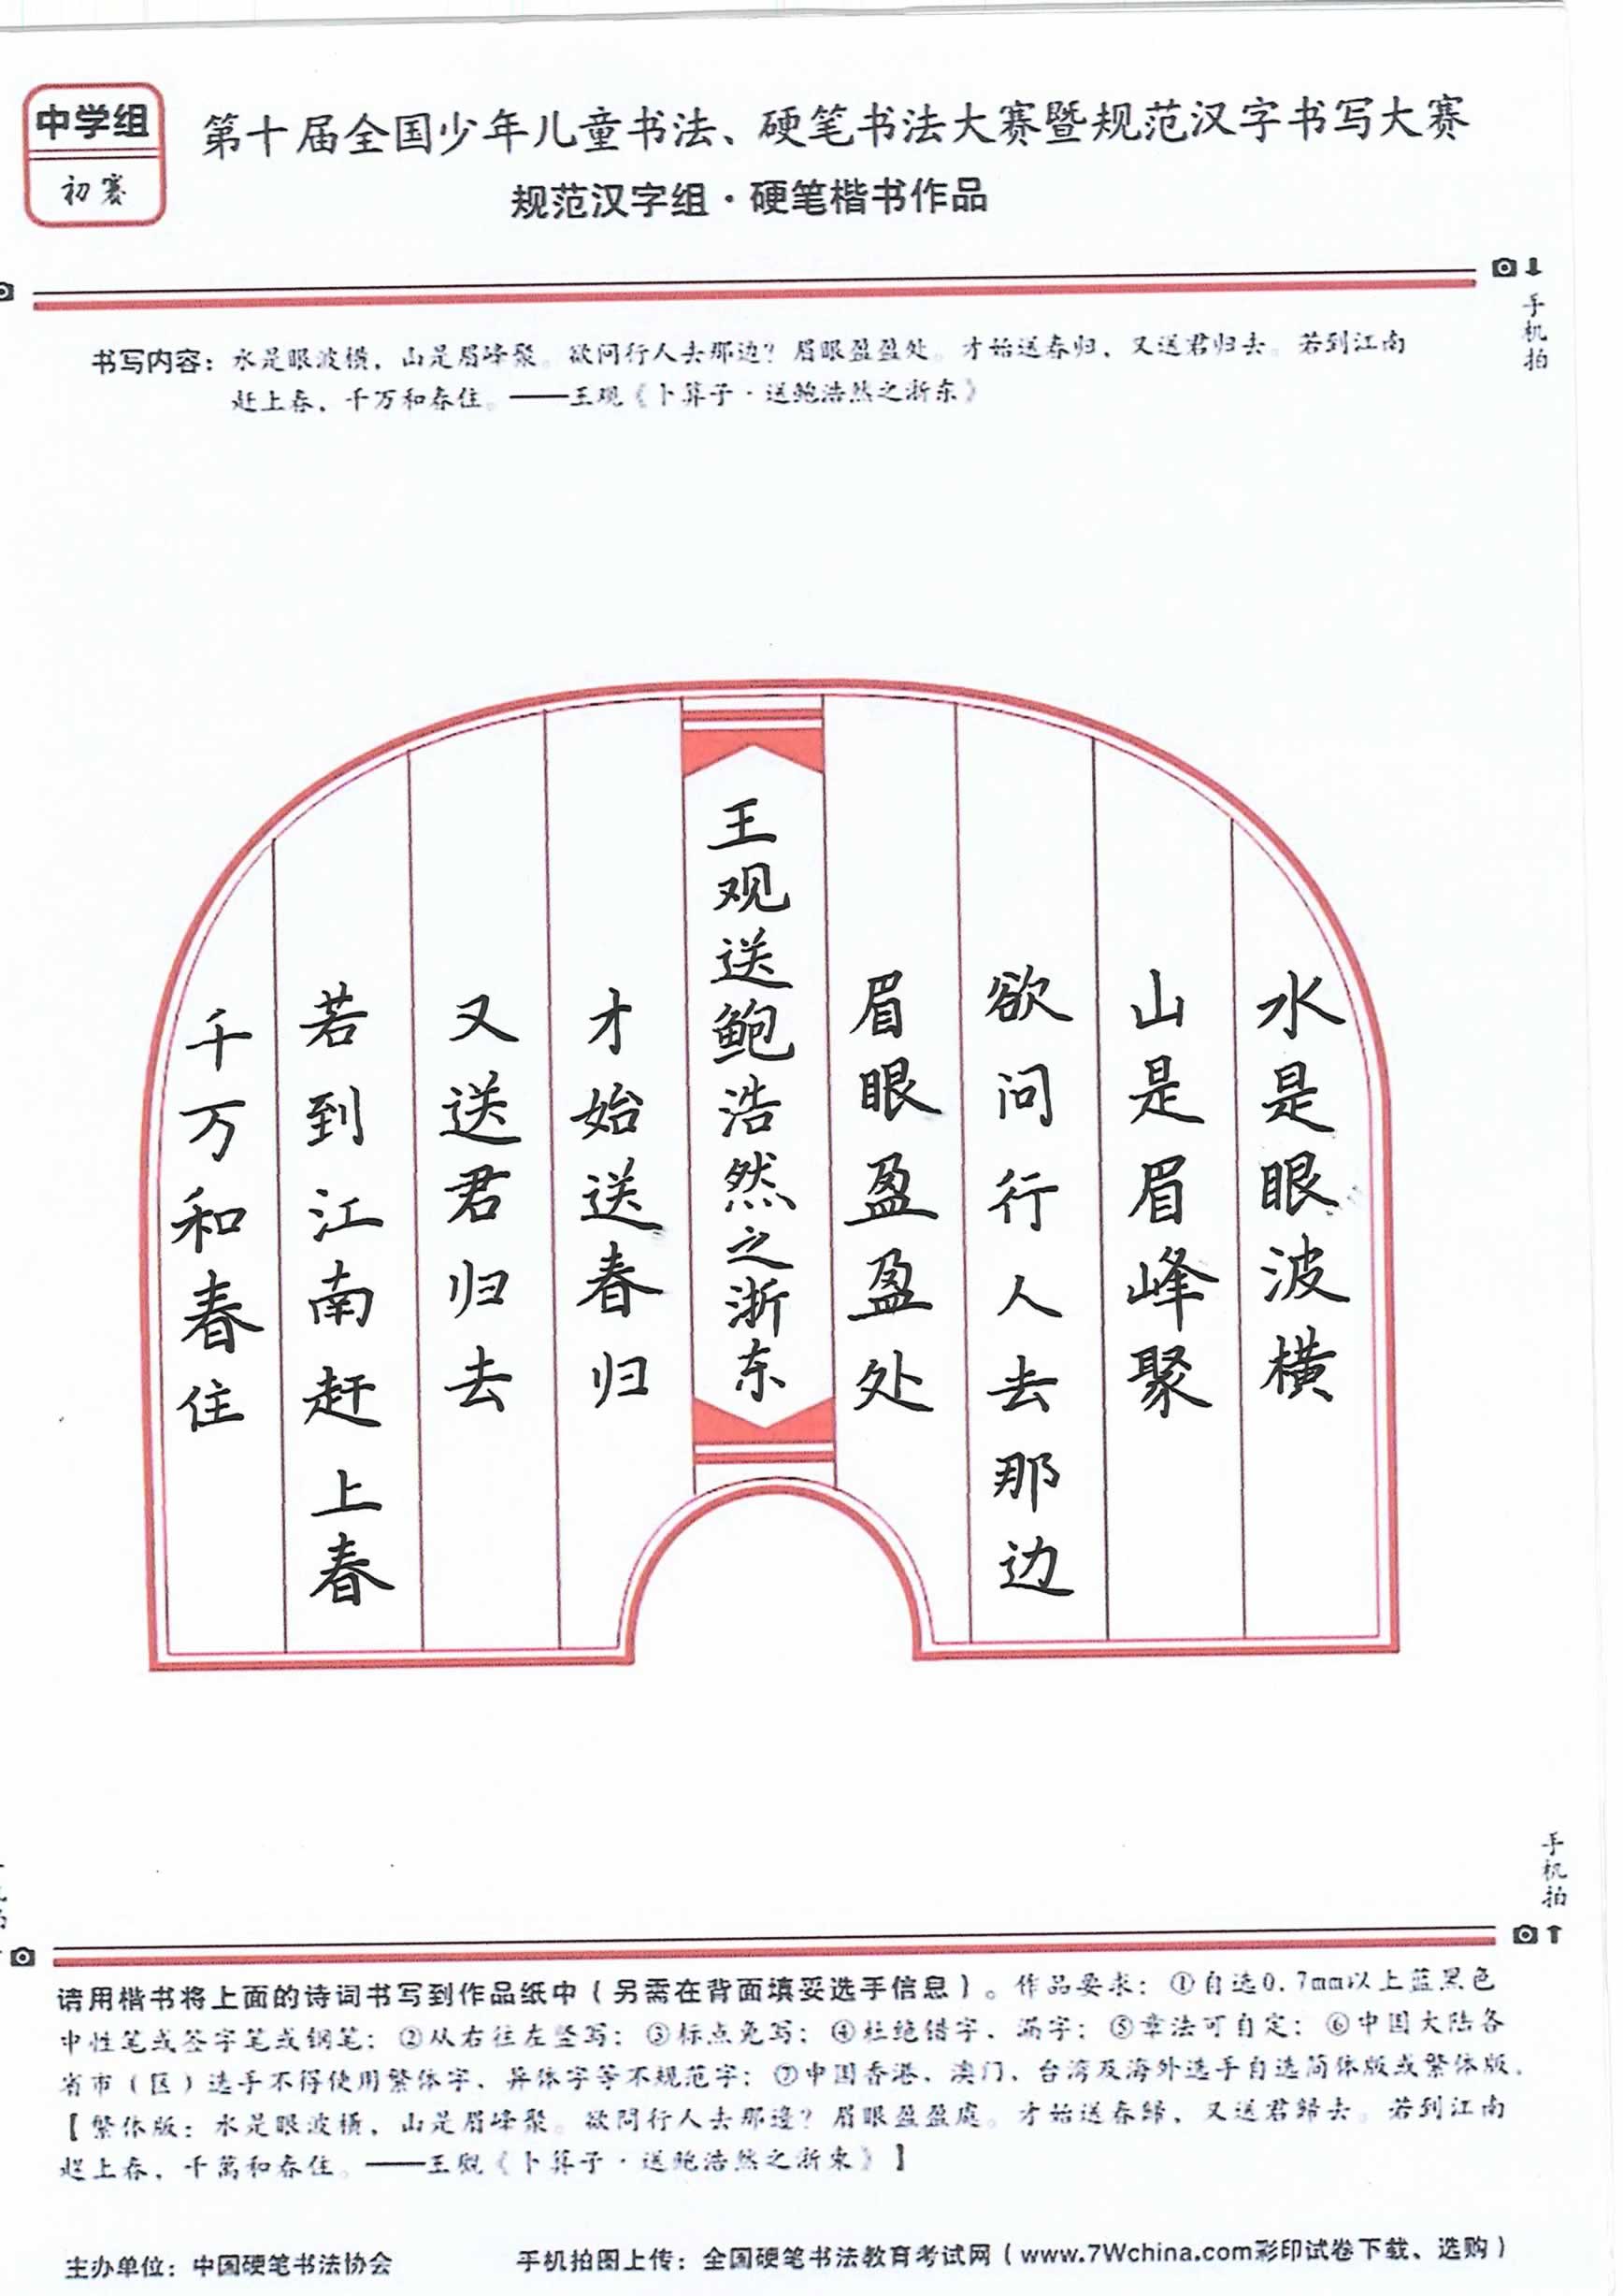 中学组
初赛
第十届全国少年儿童书法、硬笔书法大赛暨规范汉字书写大赛
规范汉字组·硬笔楷书作品
手机拍
书写内容：水是眼波横，山是眉峰聚。欲问行人去那边？眉眼盈盈处。才始送春归，又送君归去。若到江南
赶上春，千万和春住。——王观《卜算子·送鲍浩然之浙东》
水是眼波横
山是眉峰聚
欲问行人去那边
眉眼盈盈处
王观送鲍浩然之浙东
才始送春归
又送君归去
若到江南赶上春
千万和春住
手机拍
请用楷书将上面的诗词书写到作品纸中（另需在背面填妥选手信息）。作品要求：①自选0.7mm以上蓝黑色
中性笔或签字笔或钢笔；②从右往左竖写；③标点免写；④杜绝错字、漏字；⑤章法可自定；⑥中国大陆各
省市（区）选手不得使用繁体字、异体字等不规范字；⑦中国香港、澳门、台湾及海外选手自选简体版或繁体版。
【繁体版：水是眼波橫，山是眉峰聚。欲問行人去那邊？眉眼盈盈處。才始送春歸，又送君歸去。若到江南
趕上春，千萬和春住。——王觀《卜算子·送鮑浩然之浙東》】
主办单位：中国硬笔书法协会
手机拍图上传：全国硬笔书法教育考试网（www.7Wchina.com彩印试卷下载、选购）